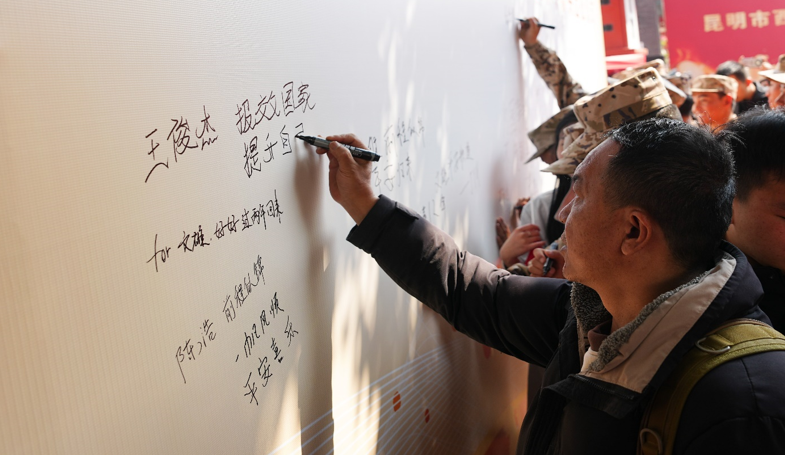 王俊杰 报效国家
提升自己
for 文雄、好好过两年回来
陈浩 前程似锦
一帆风顺
平安喜乐
昆明市西